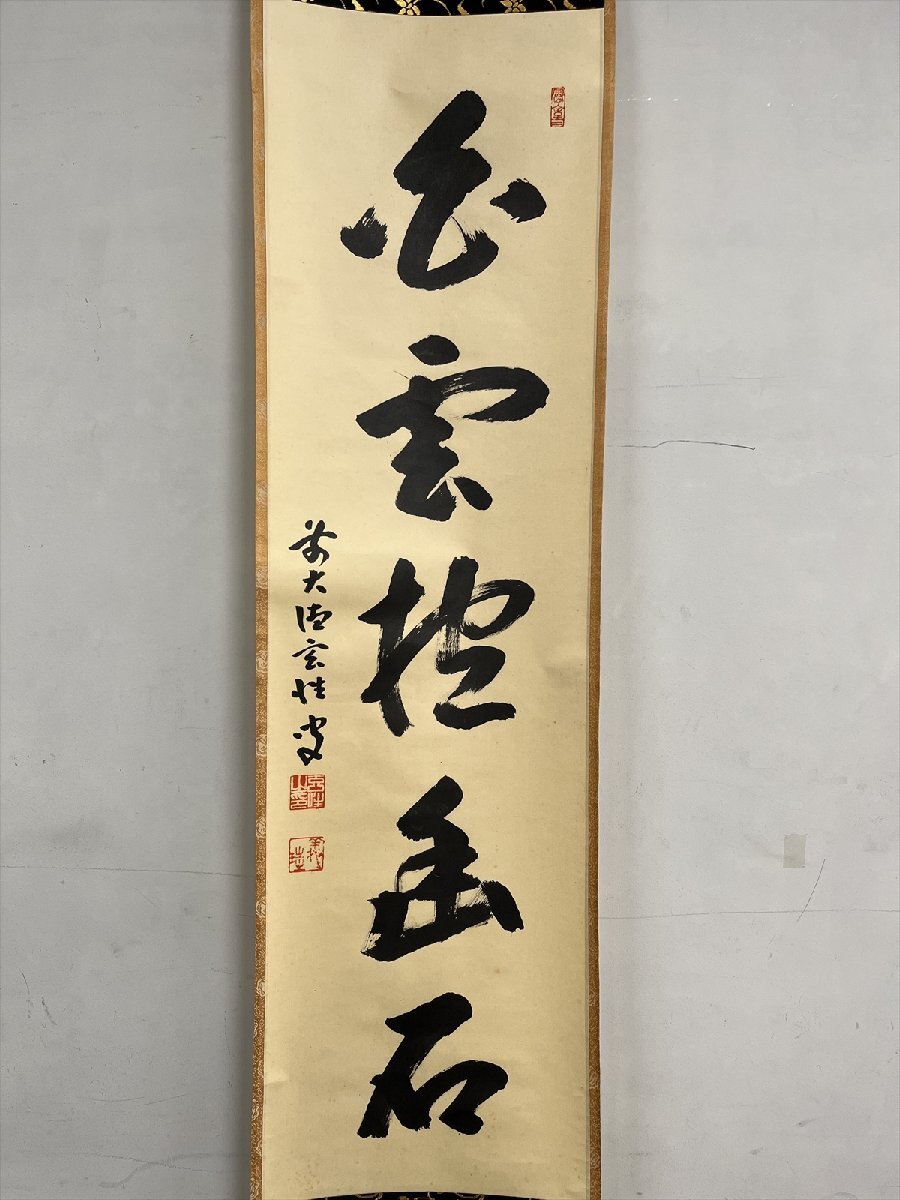 白雲抱幽石
前大徳玄性叟